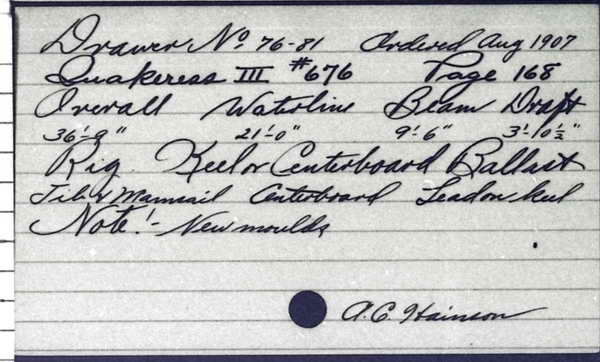 Drawer No. 76-81 Ordered Aug 1907
Quakeress III #676 Page 168
Overall Waterline Beam Draft
36'-9" 21'-0" 9'-6" 3'-10½"
Rig. Keel or Centerboard Ballast
Jib & Mainsail Centerboard Lead on keel
Note!- New moulds
A.C. Hainson